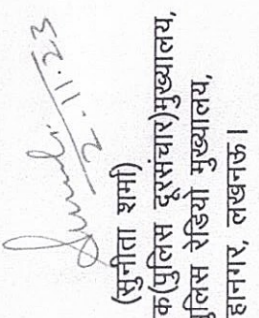 2.11.23
(सुनीता शर्मा)
क(पुलिस दूरसंचार)मुख्यालय,
पुलिस रेडियो मुख्यालय,
हानगर, लखनऊ।